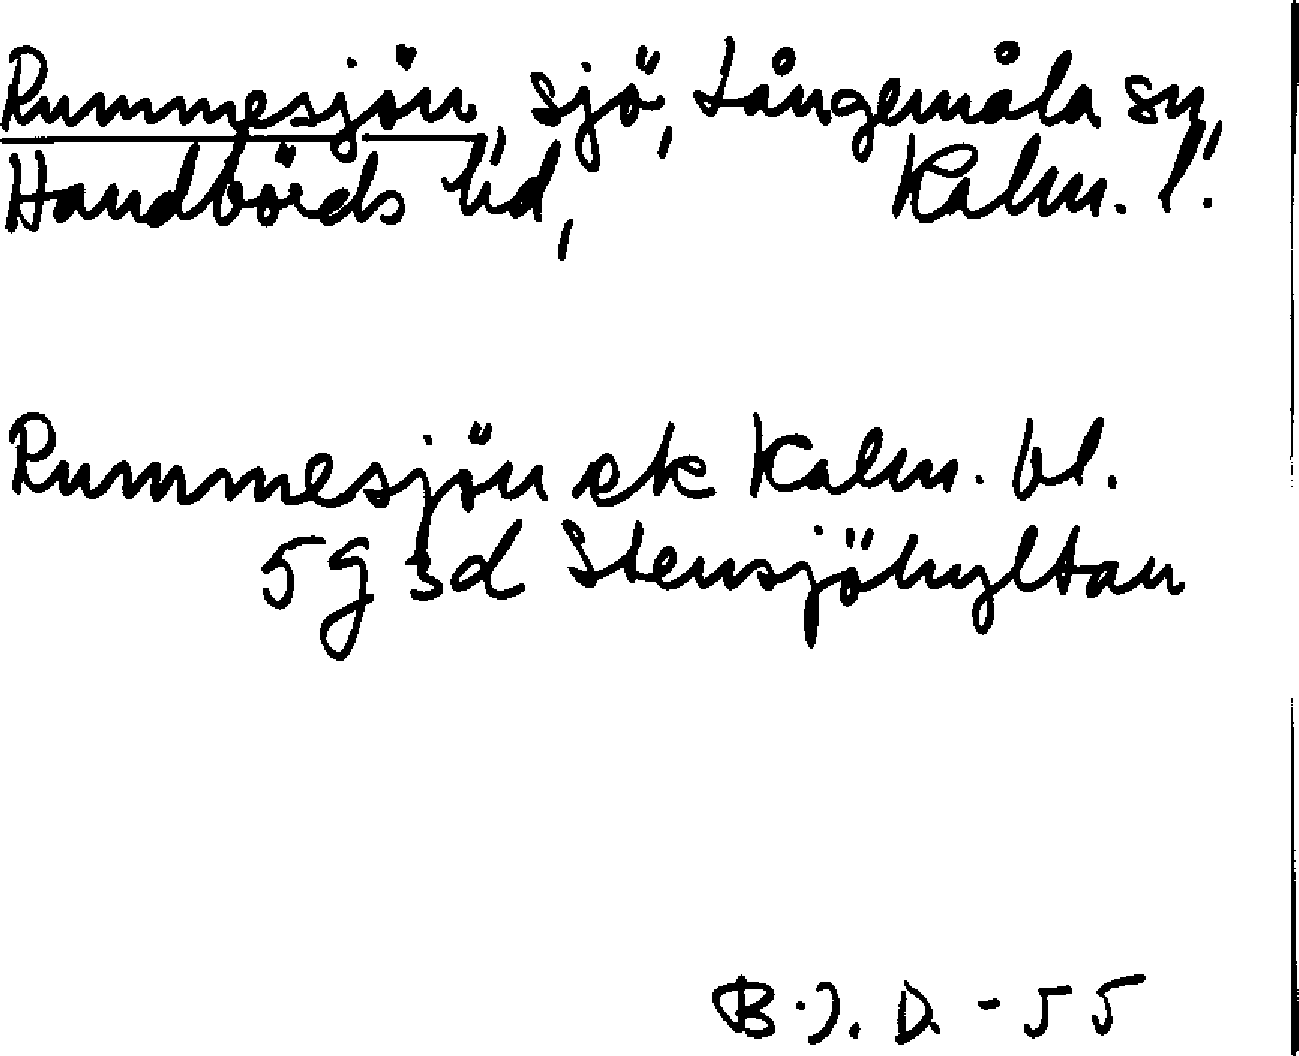 Rummesjön, sjö, Långemåla sn,
Handbörds hd, Kalm. l.
Rummesjön ek Kalm. bl.
5 g sd Stensjöhyltan
B.J. D. - 55